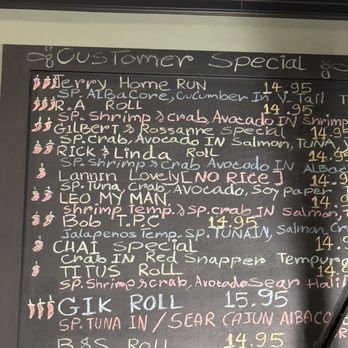 Customer Special
Jerry Home RUN 14.95
SP. AlBacore, Cucumber IN Y-Tail
R.A Roll 14.95
SP. Shrimp & crab, Avocado IN Shrimp
Gilbert & Rossanne special 14.9
SP. Crab, Avocado IN Salmon, TUNA, Y
RICK & Linda Roll 14.9
SP. Shrimp & crab Avocado IN Albac
Lannin Lovely [NO RICE] 14.
SP. Tuna, Crab, Avocado, Soy paper
LEO MY MAN 14.
Shrimp Temp. & SP. crab IN Salmon, T
Bob T.P.C 14.95
Jalapenos Temp. SP. TUNA IN, Salmon, Cr
CHAI Special
Crab IN Red Snapper Tempura
TITUS Roll
SP. Shrimp & crab, Avocado Sear Hali
GIK ROLL 15.95
SP. TUNA IN / SEAR CAJUN AlBACO
B&S Roll 14.95